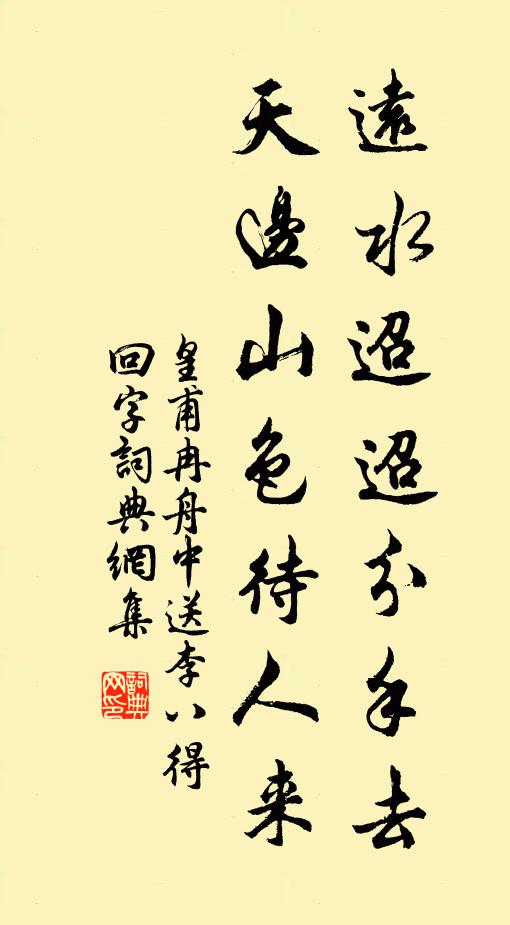 遠水迢迢分手去
天邊山色待人来
皇甫冉舟中送李八得
回字詞典網集
詞典
网印